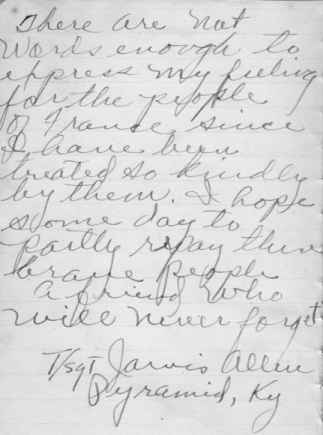 There are not
words enough to
express my feeling
for the people
of France, since
I have been
treated so kindly
by them. I hope
some day to
partly repay these
brave people
A friend who
will never forget
T/sgt Jarvis Allen
Pyramid, Ky